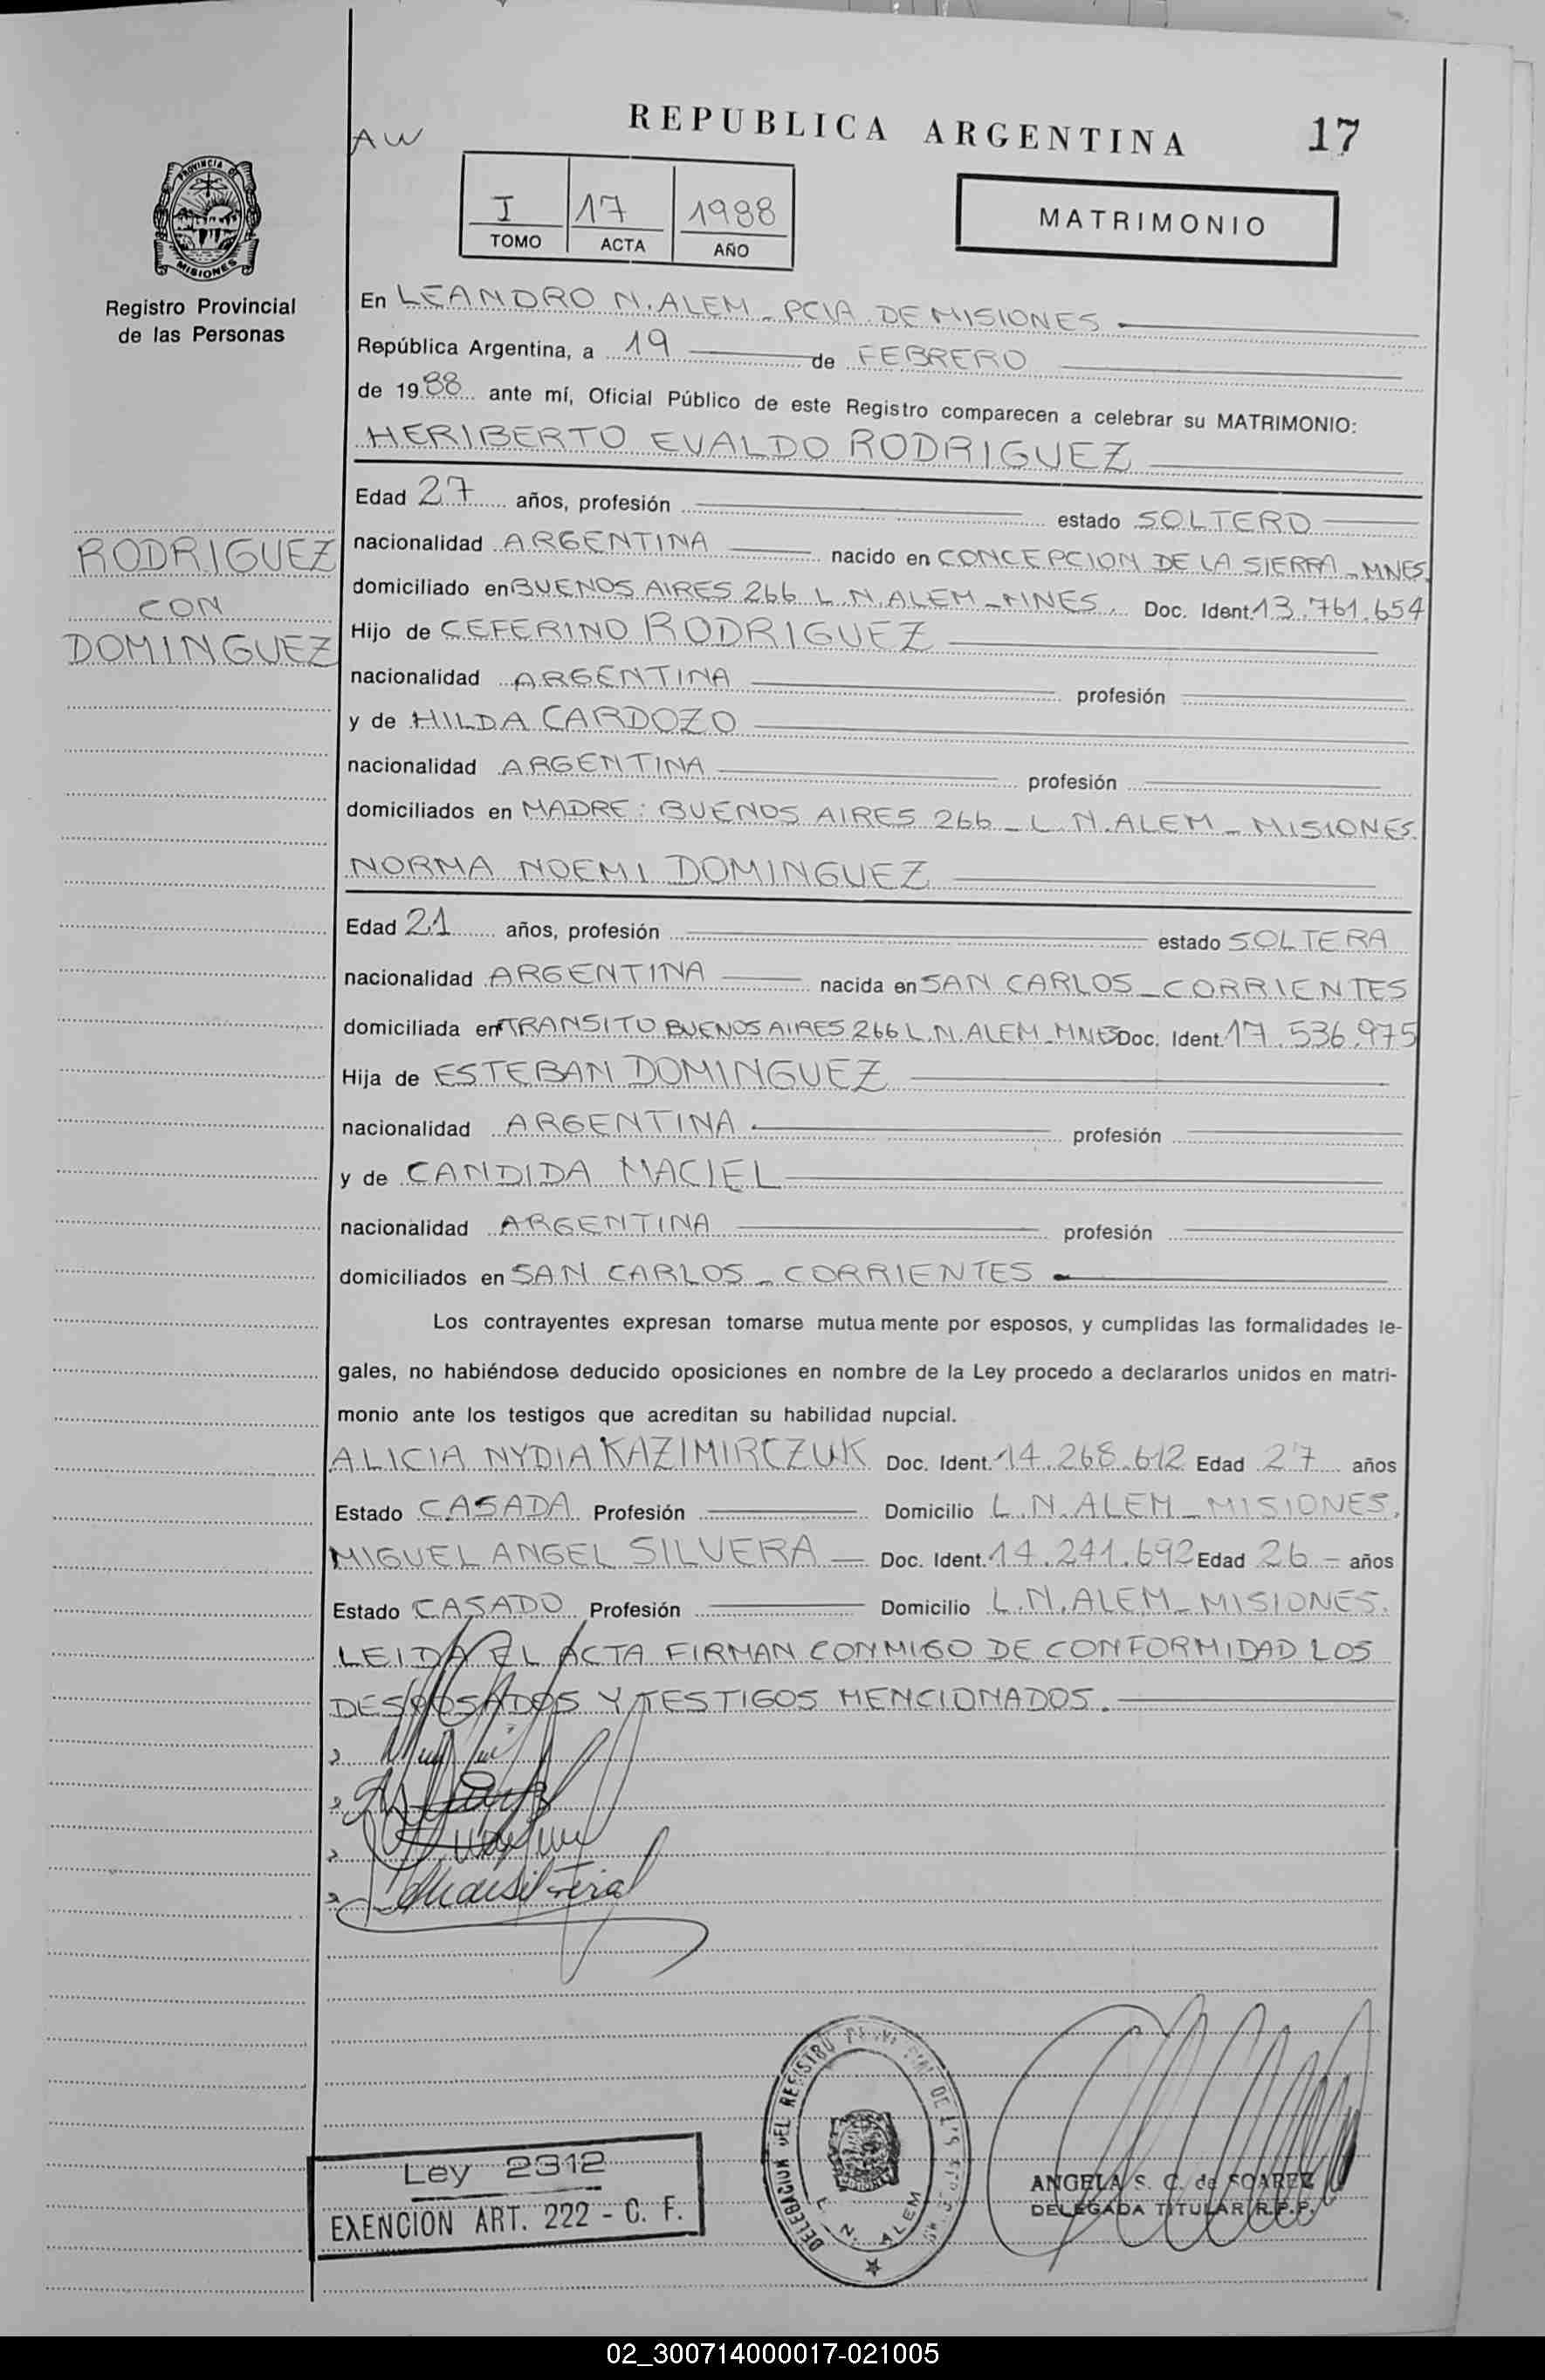 AW
REPUBLICA ARGENTINA
17
PROVINCIA DE
MISIONES
Registro Provincial
de las Personas
I 17 1988
TOMO ACTA AÑO
MATRIMONIO
En LEANDRO N. ALEM - PCIA. DE MISIONES
República Argentina, a 19 de FEBRERO
de 1988 ante mí, Oficial Público de este Registro comparecen a celebrar su MATRIMONIO:
HERIBERTO EVALDO RODRIGUEZ
Edad 27 años, profesión estado SOLTERO
RODRIGUEZ
CON
DOMINGUEZ
nacionalidad ARGENTINA nacido en CONCEPCION DE LA SIERRA - MNES.
domiciliado en BUENOS AIRES 266 L.N. ALEM - MNES. Doc. Ident. 13.761.654
Hijo de CEFERINO RODRIGUEZ
nacionalidad ARGENTINA profesión
y de HILDA CARDOZO
nacionalidad ARGENTINA profesión
domiciliados en MADRE: BUENOS AIRES 266 - L.N. ALEM - MISIONES.
NORMA NOEMI DOMINGUEZ
Edad 21 años, profesión estado SOLTERA
nacionalidad ARGENTINA nacida en SAN CARLOS - CORRIENTES
domiciliada en TRANSITO BUENOS AIRES 266 L.N. ALEM - MNES Doc. Ident. 17.536.975
Hija de ESTEBAN DOMINGUEZ
nacionalidad ARGENTINA profesión
y de CANDIDA MACIEL
nacionalidad ARGENTINA profesión
domiciliados en SAN CARLOS - CORRIENTES
Los contrayentes expresan tomarse mutuamente por esposos, y cumplidas las formalidades le-
gales, no habiéndose deducido oposiciones en nombre de la Ley procedo a declararlos unidos en matri-
monio ante los testigos que acreditan su habilidad nupcial.
ALICIA NYDIA KAZIMIRCZUK Doc. Ident. 14.268.612 Edad 27 años
Estado CASADA Profesión Domicilio L.N. ALEM - MISIONES.
MIGUEL ANGEL SILVERA Doc. Ident. 14.241.692 Edad 26 - años
Estado CASADO Profesión Domicilio L.N. ALEM - MISIONES.
LEIDA EL ACTA FIRMAN CONMIGO DE CONFORMIDAD LOS
DESPOSADOS Y TESTIGOS MENCIONADOS.
DELEGACION DEL REGISTRO
L. N. ALEM
Ley 2312
EXENCION ART. 222 - C. F.
ANGELA S. C. de SOAREZ
DELEGADA TITULAR R.P.P.
02_300714000017-021005